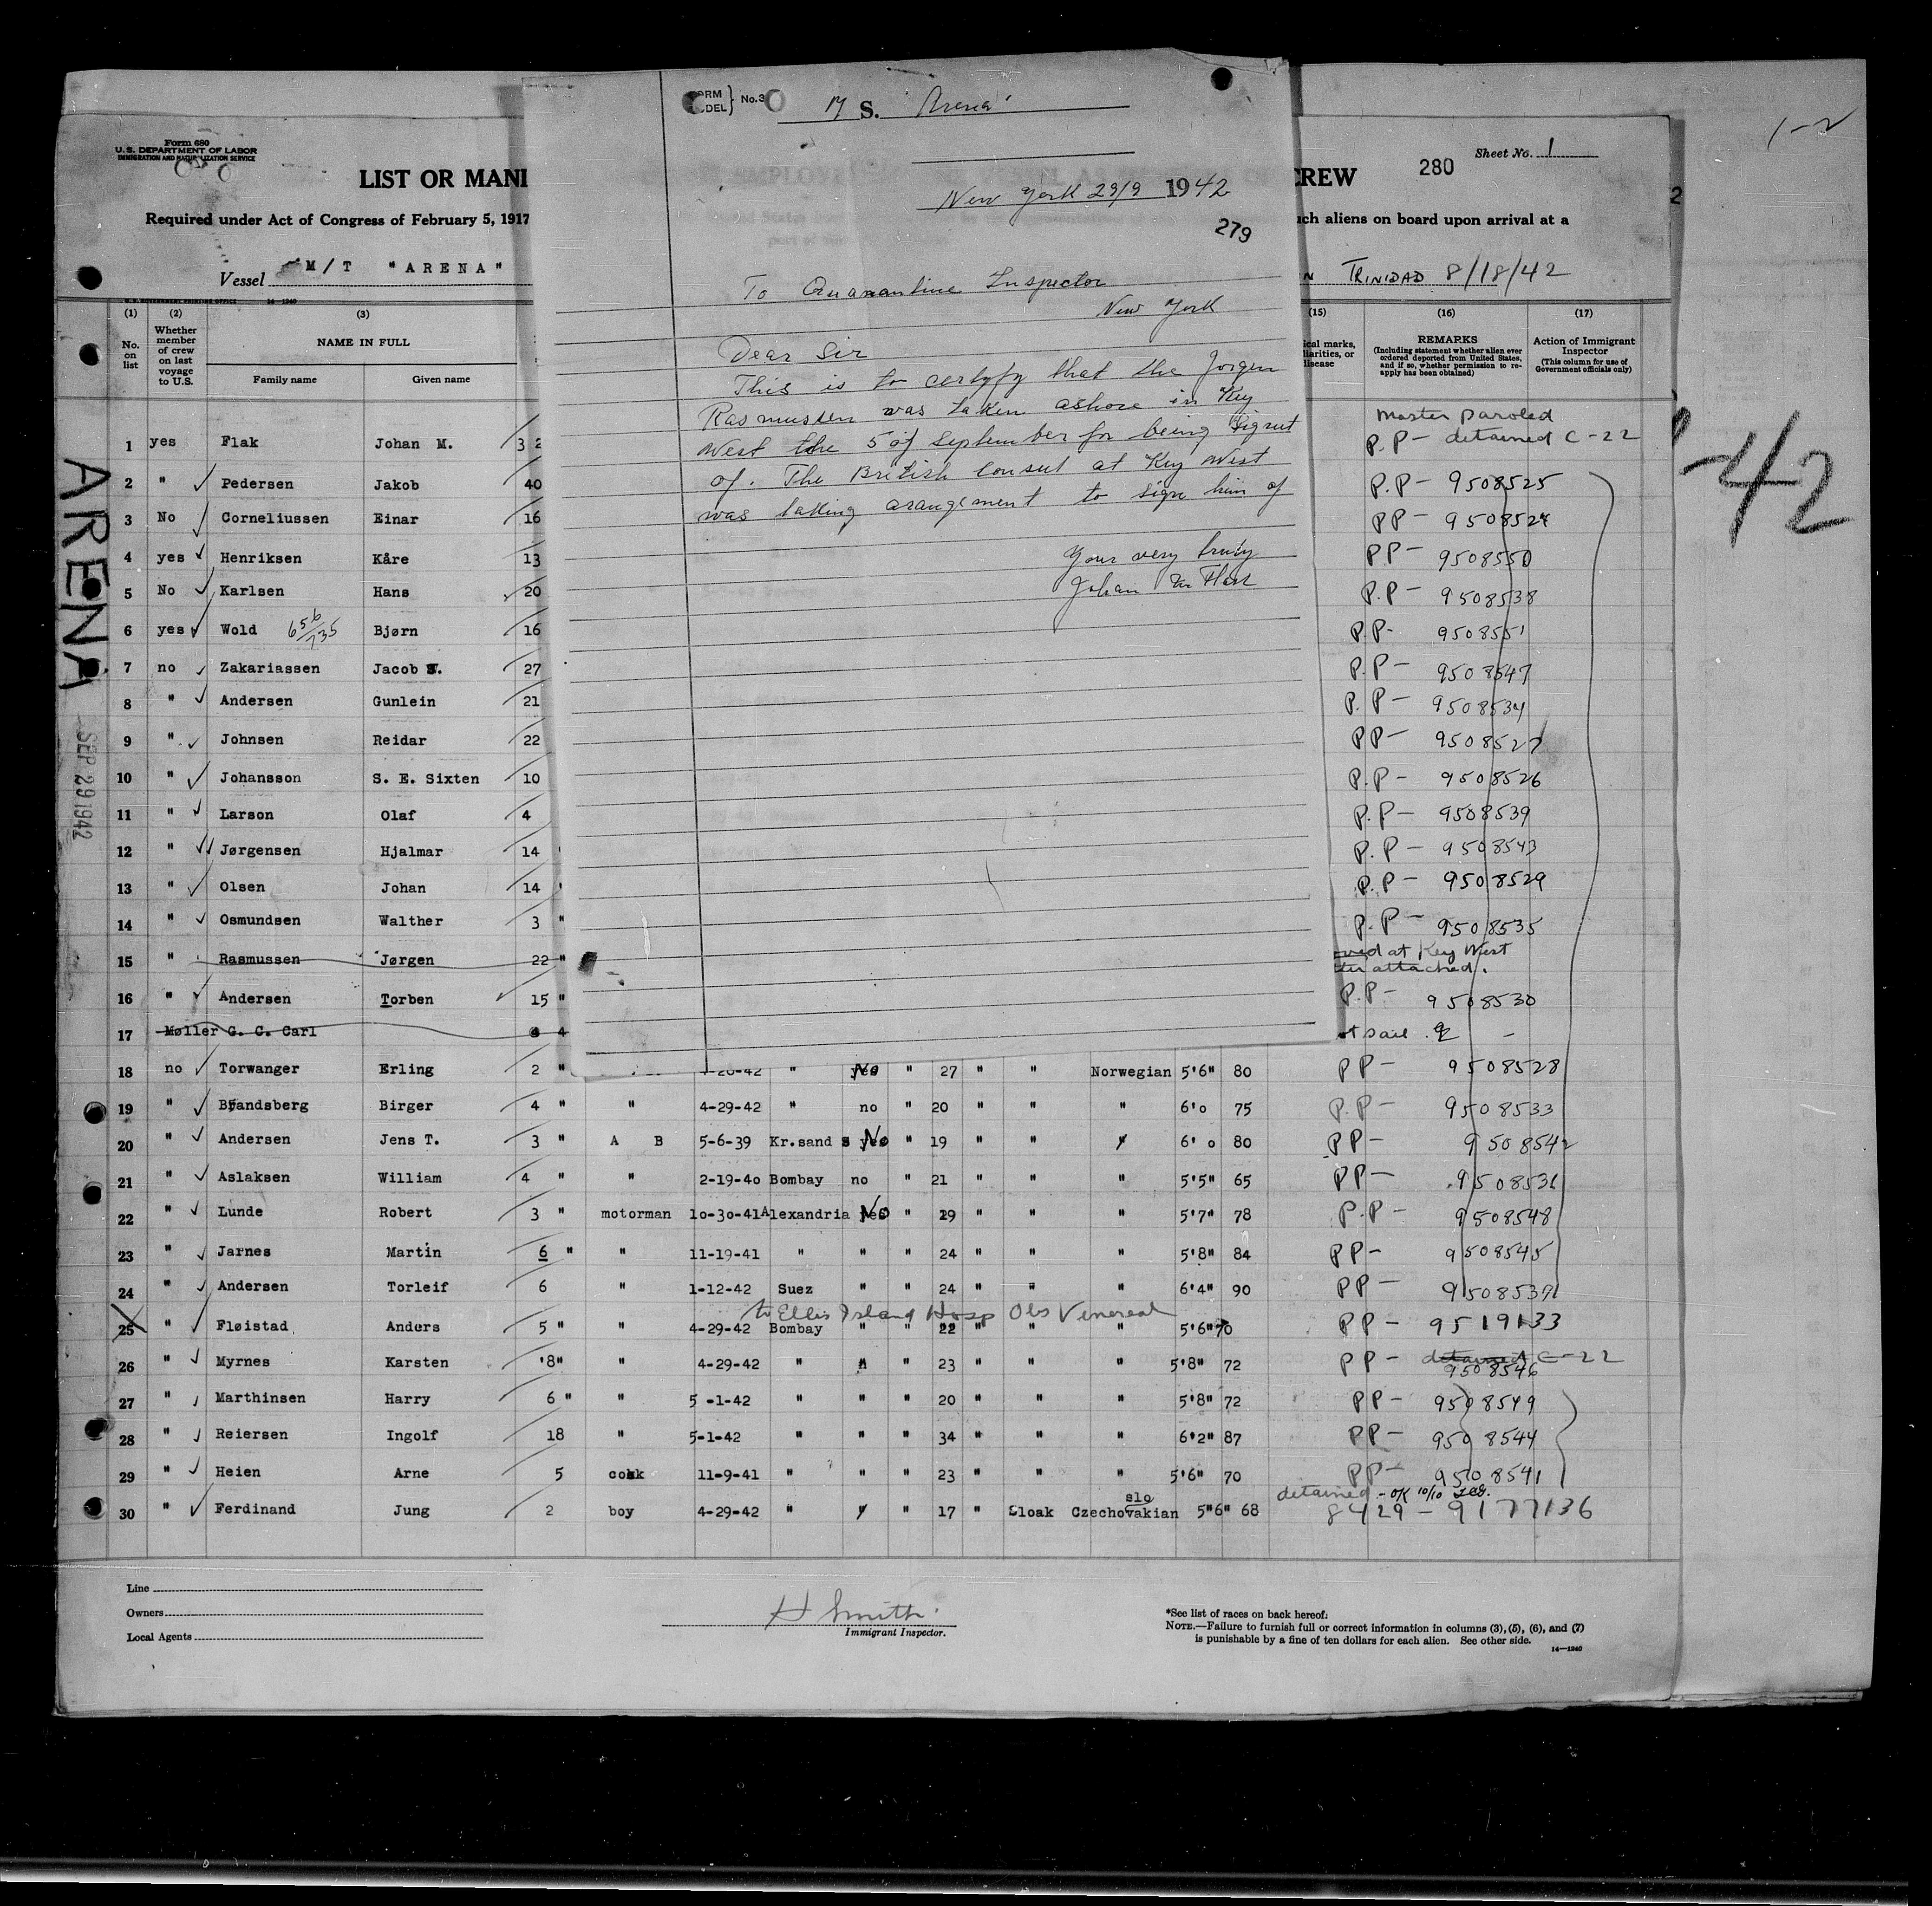 Form 680
U.S. DEPARTMENT OF LABOR
IMMIGRATION AND NATURALIZATION SERVICE
LIST OR MANI
CREW
280
Sheet No. 1
1-2
Required under Act of Congress of February 5, 1917
such aliens on board upon arrival at a
2
Vessel M/T "ARENA"
TRINIDAD 8/18/42
U.S. GOVERNMENT PRINTING OFFICE 14-1240
FORM
MODEL } No. 30
M S. Arena'
New York 29/9 1942
279
To Quarantine Inspector
New York
Dear Sir
This is to certyfy that the Jorgen
Rasmussen was taken ashore in Key
West the 5 of September for being signut
of. The British Consul at Key West
was taking arangement to sign him of
Your very truly
Johan M Flak
(1) (2) (3) (15) (16) (17)
No. on list
Whether member of crew on last voyage to U.S.
NAME IN FULL
Family name Given name
ical marks, liarities, or disease
REMARKS
(Including statement whether alien ever ordered deported from United States, and if so, whether permission to reapply has been obtained)
Action of Immigrant Inspector
(This column for use of Government officials only)
Master paroled
1 yes Flak Johan M. 32 P.P- detained C-22
2 " Pedersen Jakob 40 P.P- 9508525
3 No Corneliussen Einar 16 PP- 9508524
4 yes Henriksen Kåre 13 PP- 9508550
5 No Karlsen Hans 20 P.P- 9508538
6 yes Wold 656/735 Bjørn 16 P.P- 9508551
7 no Zakariassen Jacob 27 P.P- 9508547
8 " Andersen Gunlein 21 P.P- 9508534
9 " Johnsen Reidar 22 PP- 9508527
10 " Johansson S. E. Sixten 10 P.P- 9508526
11 " Larson Olaf 4 P.P- 9508539
12 " Jørgensen Hjalmar 14 P.P- 9508543
13 " Olsen Johan 14 P.P- 9508529
14 " Osmundsen Walther 3 " P.P- 9508535
15 " Rasmussen Jørgen 22 " ved at Key West
attached.
16 " Andersen Torben 15 " P.P- 9508530
17 Møller G. C. Carl 4 t sail. -
18 no Torwanger Erling 2 " -20-42 " No " 27 " " Norwegian 5'6" 80 PP- 9508528
19 " Brandsberg Birger 4 " " 4-29-42 " no " 20 " " " 6'0 75 P.P- 9508533
20 " Andersen Jens T. 3 " A B 5-6-39 Kr.sand S No " 19 " " " 6'0 80 PP- 9508542
21 " Aslaksen William 4 " " 2-19-40 Bombay no " 21 " " " 5'5" 65 PP- 9508536
22 " Lunde Robert 3 " motorman 10-30-41 Alexandria No " 29 " " " 5'7" 78 P.P- 9508548
23 " Jarnes Martin 6 " " 11-19-41 " " " 24 " " " 5'8" 84 PP- 9508545
24 " Andersen Torleif 6 " 1-12-42 Suez " " 24 " " " 6'4" 90 PP- 9508537
to Ellis Island Hosp Obs Venereal
25 " Fløistad Anders 5 " " 4-29-42 Bombay " " 22 " " " 5'6" 70 PP- 9519133
26 " Myrnes Karsten 8" " 4-29-42 " " " 23 " " " 5'8" 72 PP- detained C-22
9508546
27 " Marthinsen Harry 6 " " 5-1-42 " " " 20 " " " 5'8" 72 PP- 9508549
28 " Reiersen Ingolf 18 " 5-1-42 " " " 34 " " " 6'2" 87 PP- 9508544
29 " Heien Arne 5 cook 11-9-41 " " " 23 " " " 5'6" 70 PP- 9508541
detained - OK 10/10
30 " Ferdinand Jung 2 boy 4-29-42 " " 17 " Sloak Czechoslovakian 5"6" 68 8429-9177136
ARENA
SEP 29 1942
-42
Line
Owners
Local Agents
H Smith
Immigrant Inspector.
*See list of races on back hereof.
NOTE.—Failure to furnish full or correct information in columns (3), (5), (6), and (7)
is punishable by a fine of ten dollars for each alien. See other side.
14-1240